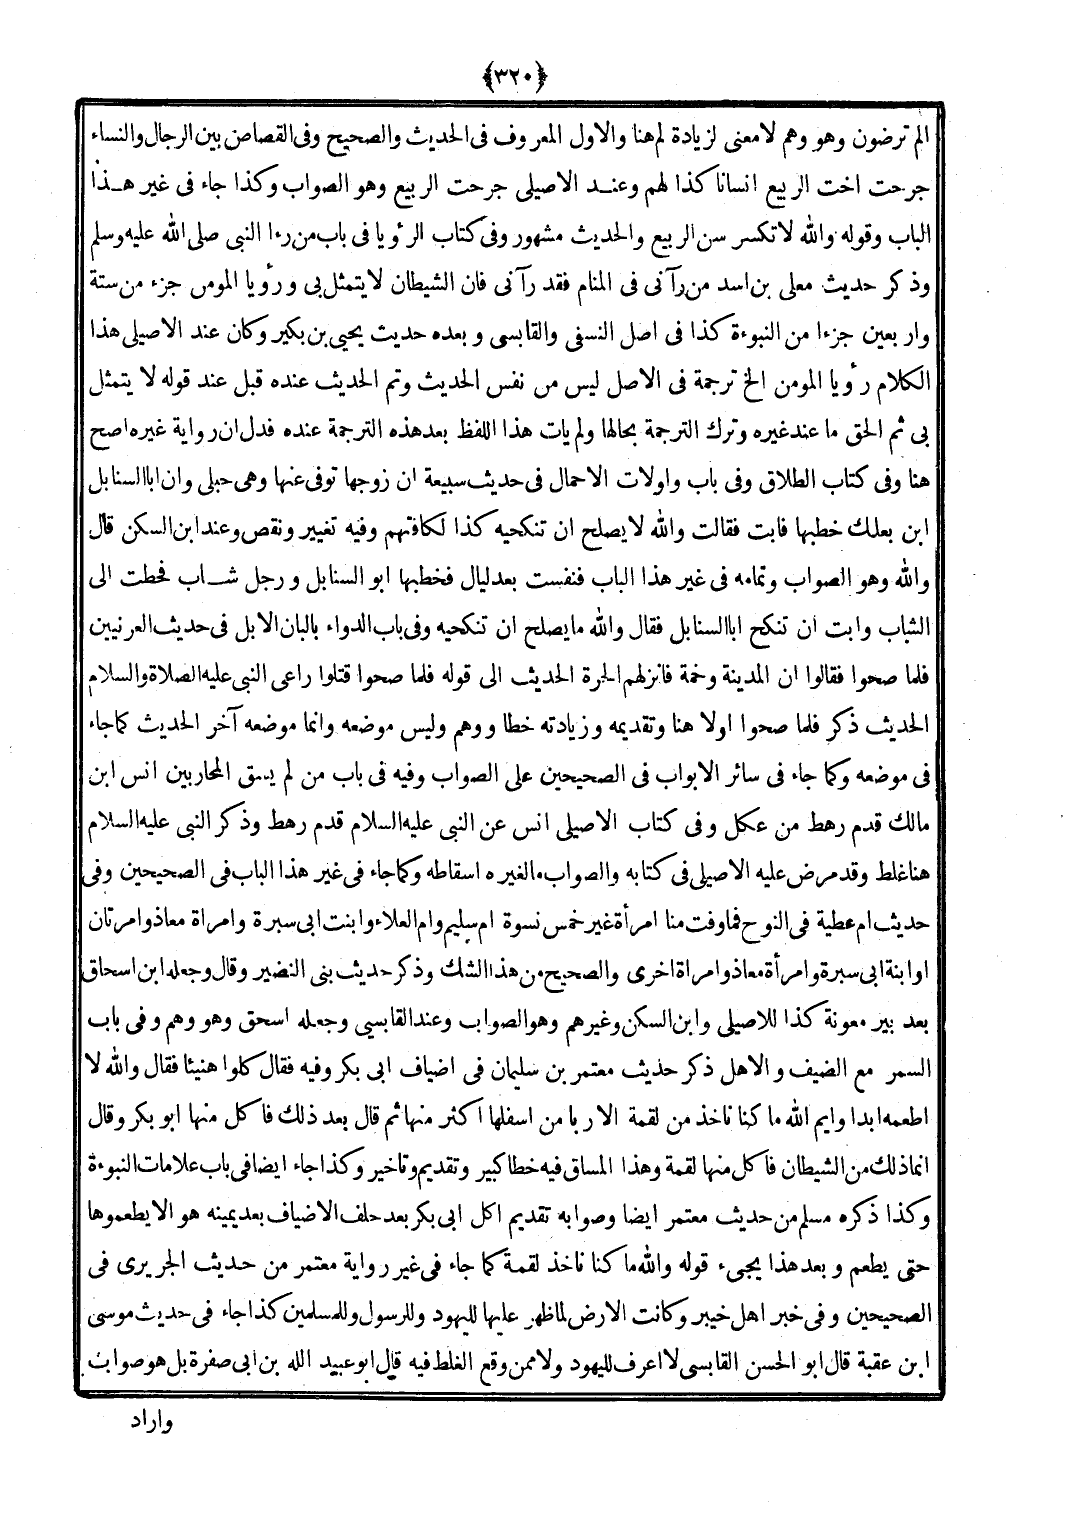 ﴿٣٢٠﴾
الم ترضون وهو وهم لا معنى لزيادة لم هنا والاول المعروف فى الحديث والصحيح وفى القصاص بين الرجال والنساء
جرحت اخت الربيع انسانا كذا لهم وعند الاصيلى جرحت الربيع وهو الصواب وكذا جاء فى غير هذا
الباب وقوله والله لا تكسر سن الربيع والحديث مشهور وفى كتاب الرؤيا فى باب من رءا النبى صلى الله عليه وسلم
وذكر حديث معلى بن اسد من رآنى فى المنام فقد رآنى فان الشيطان لا يتمثل بى ورؤيا المومن جزء من ستة
واربعين جزءا من النبوءة كذا فى اصل النسفى والقابسى وبعده حديث يحيى بن بكير وكان عند الاصيلى هذا
الكلام رؤيا المومن الخ ترجمة فى الاصل ليس من نفس الحديث وتم الحديث عنده قبل عند قوله لا يتمثل
بى ثم الحق ما عند غيره وترك الترجمة بحالها ولم يات هذا اللفظ بعد هذه الترجمة عنده فدل ان رواية غيره اصح
هنا وفى كتاب الطلاق وفى باب واولات الاحمال فى حديث سبيعة ان زوجها توفى عنها وهى حبلى وان ابا السنابل
ابن بعلك خطبها فابت فقالت والله لا يصلح ان تنكحيه كذا لكافتهم وفيه تغيير ونقص وعند ابن السكن قال
والله وهو الصواب وتمامه فى غير هذا الباب فنفست بعد ليال فخطبها ابو السنابل ورجل شاب فحطت الى
الشاب وابت ان تنكح ابا السنابل فقال والله ما يصلح ان تنكحيه وفى باب الدواء بالبان الابل فى حديث العرنيين
فلما صحوا فقالوا ان المدينة وخمة فانزلهم الحرة الحديث الى قوله فلما صحوا قتلوا راعى النبى عليه الصلاة والسلام
الحديث ذكر فلما صحوا اولا هنا وتقديمه وزيادته خطا ووهم وليس موضعه وانما موضعه آخر الحديث كما جاء
فى موضعه وكما جاء فى سائر الابواب فى الصحيحين على الصواب وفيه فى باب من لم يسق المحاربين انس ابن
مالك قدم رهط من عكل وفى كتاب الاصيلى انس عن النبى عليه السلام قدم رهط وذكر النبى عليه السلام
هنا غلط وقد مرض عليه الاصيلى فى كتابه والصواب ما لغيره اسقاطه وكما جاء فى غير هذا الباب فى الصحيحين وفى
حديث ام عطية فى النوح فما وفت منا امرأة غير خمس نسوة ام سليم وام العلاء وابنت ابى سبرة وامراة معاذ وامرتان
او ابنة ابى سبرة وامرأة معاذ وامراة اخرى والصحيح من هذا الشك وذكر حديث بنى النضير وقال وجعله ابن اسحاق
بعد بير معونة كذا للاصيلى وابن السكن وغيرهم وهو الصواب وعند القابسي وجعله اسحق وهو وهم وفى باب
السمر مع الضيف والاهل ذكر حديث معتمر بن سليمان فى اضياف ابى بكر وفيه فقال كلوا هنيئا فقال والله لا
اطعمه ابدا وايم الله ما كنا ناخذ من لقمة الا ربا من اسفلها اكثر منها ثم قال بعد ذلك فاكل منها ابو بكر وقال
انما ذلك من الشيطان فاكل منها لقمة وهذا المساق فيه خطا كبير وتقديم وتاخير وكذا جاء ايضا فى باب علامات النبوءة
وكذا ذكره مسلم من حديث معتمر ايضا وصوابه تقديم اكل ابى بكر بعد حلف الاضياف بعد يمينه هو الا يطعموها
حتى يطعم وبعد هذا يجىء قوله والله ما كنا ناخذ لقمة كما جاء فى غير رواية معتمر من حديث الجريرى فى
الصحيحين وفى خبر اهل خيبر وكانت الارض لما ظهر عليها لليهود وللرسول وللمسلمين كذا جاء فى حديث موسى
ابن عقبة قال ابو الحسن القابسى لا اعرف لليهود ولا ممن وقع الغلط فيه قال ابو عبيد الله بن ابى صفرة بل هو صواب
واراد